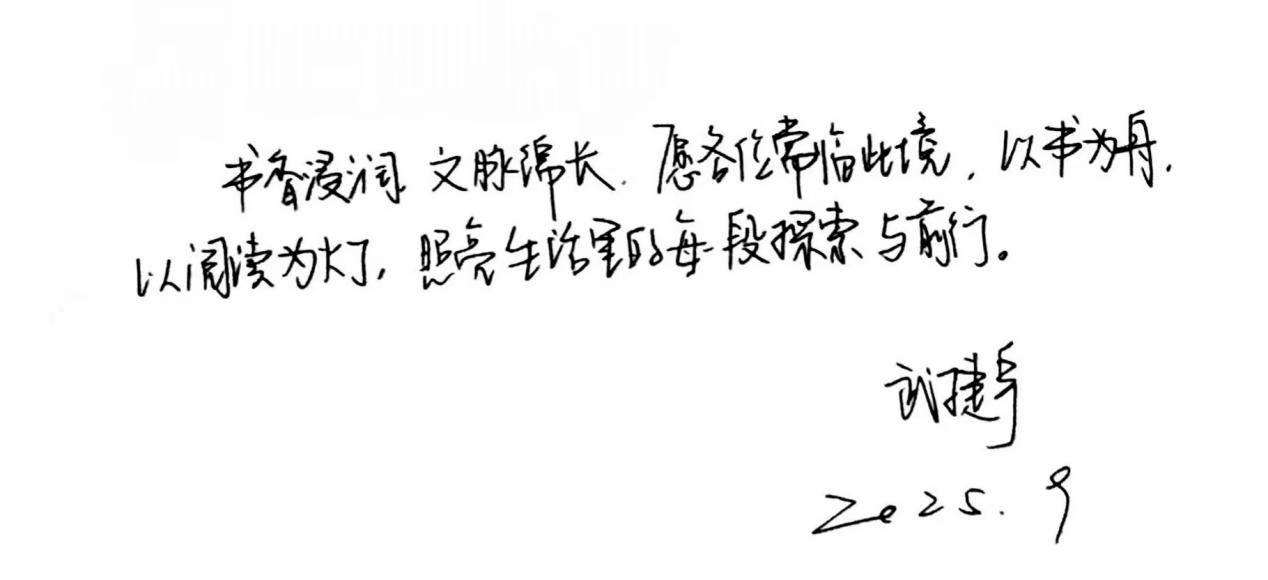 书香浸润 文脉绵长. 愿各位常临此境, 以书为舟,
以阅读为灯, 照亮生活里的每段探索与前行。
武捷
2025.9